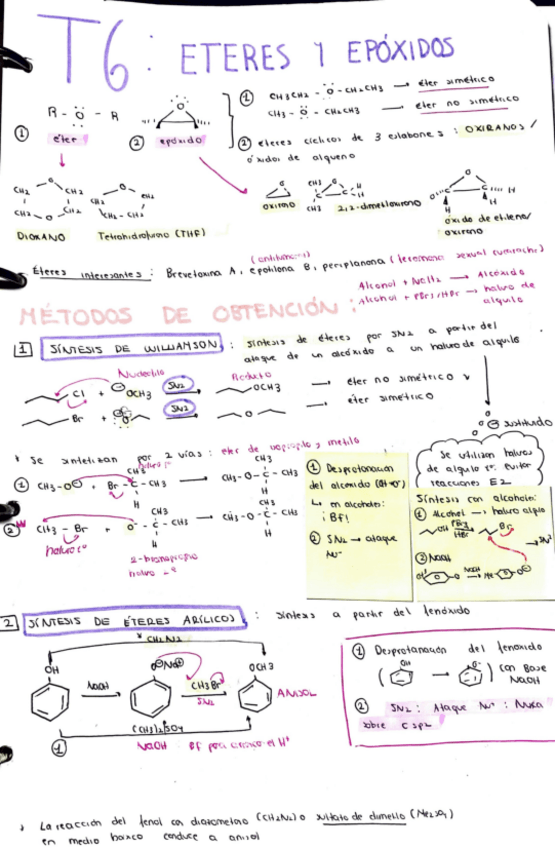 T6: ETERES Y EPÓXIDOS
R - O - R
① éter
② epóxido
① CH3CH2 - O - CH2CH3 → éter simétrico
CH3 - O - CH2CH3 → éter no simétrico
② eteres cíclicos de 3 eslabones : OXIRANOS /
óxidos de alqueno
CH2 O CH2
CH2 - O - CH2
DIOXANO
O
CH2 - CH2
Tetrahidrofurano (THF)
O
oxirano
CH3 O H
CH3 C - C H
2,2-dimetiloxirano
O
C - C
H H
óxido de etileno/
oxirano
Éteres interesantes : Brevetoxina A, epotilona B, periplanona (feromona sexual cucaracha)
Alcohol + NaH2 → Alcóxido
Alcohol + PBr3/HBr → haluro de
alquilo
MÉTODOS DE OBTENCIÓN :
1 SÍNTESIS DE WILLIAMSON : síntesis de éteres por SN2 a partir del
ataque de un alcóxido a un haluro de alquilo
Nucleófilo
Producto
Cl + OCH3 SN2 OCH3 → éter no simétrico
Br + O SN2 O → éter simétrico
* Se sintetizan por 2 vías : eter de isopropilo y metilo
① CH3-O + Br - C - CH3 → CH3-O-C-CH3
CH3
H
② CH3 - Br + O - C - CH3 → CH3-O-C-CH3
CH3
H
① Desprotonación
del alcohol
↳ en alcoholes:
② SN2 → ataque
Nu⁻
Se utilizan haluros
de alquilo 1º: evitar
reacciones E2
Síntesis con alcoholes:
① Alcohol → haluro alquilo
OH PBr3 HBr Br
→ SN2
② NaOH
2 SÍNTESIS DE ÉTERES ARÍLICOS : síntesis a partir del fenóxido
* CH2N2
OH NaOH O⊖Na⊕ CH3Br SN2 OCH3 ANISOL
(CH3)2SO4
NaOH
① Desprotonación del fenóxido
( OH → O⁻ ) con Base
NaOH
② SN2 : Ataque Nu⁻ : Nunca
sobre C sp2
La reacción del fenol con diazometano (CH2N2) o sulfato de dimetilo (Me2SO4)
en medio básico conduce a anisol